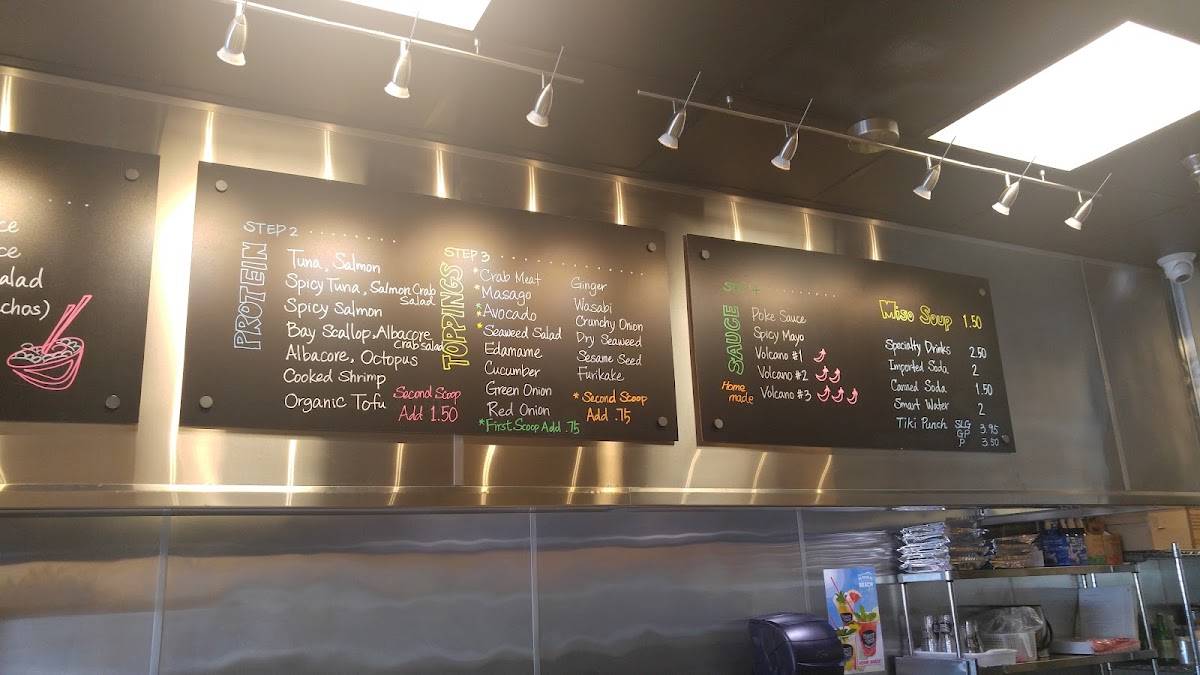 ce
ce
alad
chos)
STEP 2
PROTEIN
Tuna, Salmon
Spicy Tuna, Salmon Crab Salad
Spicy Salmon
Bay Scallop, Albacore Crab Salad
Albacore, Octopus
Cooked Shrimp
Organic Tofu
Second Scoop
Add 1.50
STEP 3
TOPPINGS
*Crab Meat
*Masago
*Avocado
*Seaweed Salad
Edamame
Cucumber
Green Onion
Red Onion
*First Scoop Add .75
Ginger
Wasabi
Crunchy Onion
Dry Seaweed
Sesame Seed
Furikake
*Second Scoop
Add .75
STEP 4
SAUCE
Home made
Poke Sauce
Spicy Mayo
Volcano #1
Volcano #2
Volcano #3
Miso Soup 1.50
Specialty Drinks 2.50
Imported Soda 2
Canned Soda 1.50
Smart Water 2
Tiki Punch SLG 3.95
GP
P 3.50